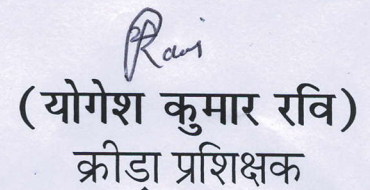 (योगेश कुमार रवि)
क्रीडा प्रशिक्षक